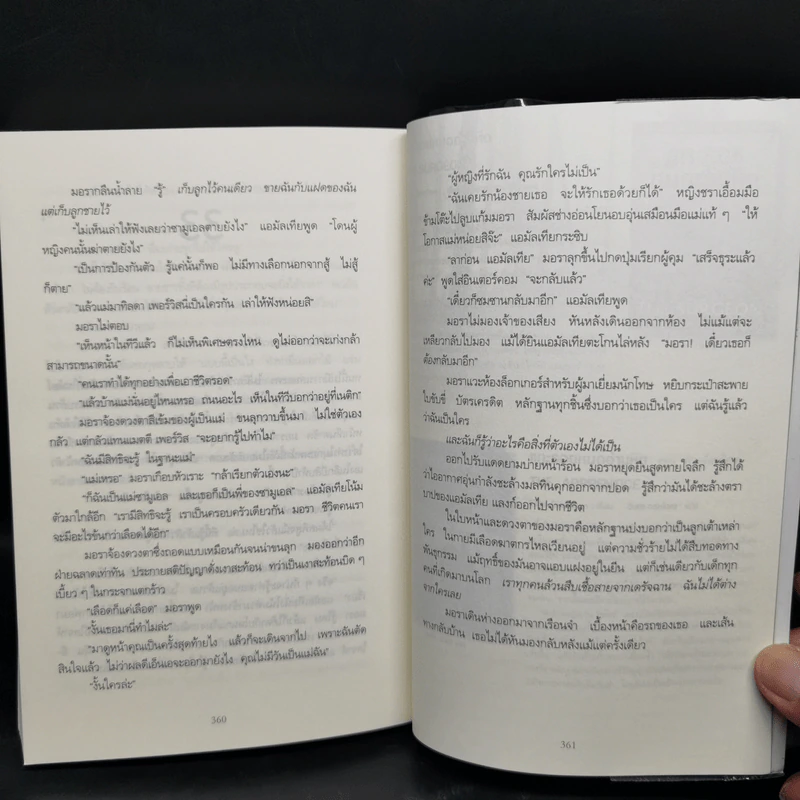 มอรากลืนน้ำลาย "รู้" เก็บลูกไว้คนเดียว ขายฉันกับแฝดของฉัน
แต่เก็บลูกชายไว้
"ไม่เห็นเล่าให้ฟังเลยว่าซามูเอลตายยังไง" แอมัลเทียพูด "โดนผู้
หญิงคนนั้นฆ่าตายยังไง"
"เป็นการป้องกันตัว รู้แค่นั้นก็พอ ไม่มีทางเลือกนอกจากสู้ ไม่สู้
ก็ตาย"
"แล้วแม่มาทิลดา เพอร์วิสนี่เป็นใครกัน เล่าให้ฟังหน่อยสิ"
มอราไม่ตอบ
"เห็นหน้าในทีวีแล้ว ก็ไม่เห็นพิเศษตรงไหน ดูไม่ออกว่าจะเก่งกล้า
สามารถขนาดนั้น"
"คนเราทำได้ทุกอย่างเพื่อเอาชีวิตรอด"
"แล้วบ้านแม่นั่นอยู่ไหนเหรอ ถนนอะไร เห็นในทีวีบอกว่าอยู่ที่นติก"
มอราจ้องดวงตาสีเข้มของผู้เป็นแม่ ขนลุกวาบขึ้นมา ไม่ใช่ตัวเอง
กลัว แต่กลัวแทนแมตตี เพอร์วิส "จะอยากรู้ไปทำไม"
"ฉันมีสิทธิจะรู้ ในฐานะแม่"
"แม่เหรอ" มอราเกือบหัวเราะ "กล้าเรียกตัวเองนะ"
"ก็ฉันเป็นแม่ซามูเอล และเธอก็เป็นพี่ของซามูเอล" แอมัลเทียโน้ม
ตัวมาใกล้อีก "เรามีสิทธิจะรู้ เราเป็นครอบครัวเดียวกัน มอรา ชีวิตคนเรา
จะมีอะไรข้นกว่าเลือดได้อีก"
มอราจ้องดวงตาซึ่งถอดแบบเหมือนกันจนน่าขนลุก มองออกว่าอีก
ฝ่ายฉลาดเท่าทัน ประกายสติปัญญาดั่งเงาสะท้อน ทว่าเป็นเงาสะท้อนบิด ๆ
เบี้ยว ๆ ในกระจกแตกร้าว
"เลือดก็แค่เลือด" มอราพูด
"งั้นเธอมานี่ทำไมล่ะ"
"มาดูหน้าคุณเป็นครั้งสุดท้ายไง แล้วก็จะเดินจากไป เพราะฉันตัด
สินใจแล้ว ไม่ว่าผลดีเอ็นเอจะออกมายังไง คุณไม่มีวันเป็นแม่ฉัน"
"งั้นใครล่ะ"
360
"ผู้หญิงที่รักฉัน คุณรักใครไม่เป็น"
"ฉันเคยรักน้องชายเธอ จะให้รักเธอด้วยก็ได้" หญิงชราเอื้อมมือ
ข้ามโต๊ะไปลูบแก้มมอรา สัมผัสช่างอ่อนโยนอบอุ่นเสมือนมือแม่แท้ ๆ "ให้
โอกาสแม่หน่อยสิจ๊ะ" แอมัลเทียกระซิบ
"ลาก่อน แอมัลเทีย" มอราลุกขึ้นไปกดปุ่มเรียกผู้คุม "เสร็จธุระแล้ว
ค่ะ" พูดใส่อินเตอร์คอม "จะกลับแล้ว"
"เดี๋ยวก็ซมซานกลับมาอีก" แอมัลเทียพูด
มอราไม่มองเจ้าของเสียง หันหลังเดินออกจากห้อง ไม่แม้แต่จะ
เหลียวกลับไปมอง แม้ได้ยินแอมัลเทียตะโกนไล่หลัง "มอรา! เดี๋ยวเธอก็
ต้องกลับมาอีก"
มอราแวะห้องล็อกเกอร์สำหรับผู้มาเยี่ยมนักโทษ หยิบกระเป๋าสะพาย
ใบขับขี่ บัตรเครดิต หลักฐานทุกชิ้นซึ่งบอกว่าเธอเป็นใคร แต่ฉันรู้แล้ว
ว่าฉันเป็นใคร
และฉันก็รู้ว่าอะไรคือสิ่งที่ตัวเองไม่ได้เป็น
ออกไปรับแดดยามบ่ายหน้าร้อน มอราหยุดยืนสูดหายใจลึก รู้สึกได้
ว่าไออากาศอุ่นกำลังชะล้างมลทินคุกออกจากปอด รู้สึกว่ามันได้ชะล้างตรา
บาปของแอมัลเทีย แลงก์ออกไปจากชีวิต
ในใบหน้าและดวงตาของมอราคือหลักฐานบ่งบอกว่าเป็นลูกเต้าเหล่า
ใคร ในกายมีเลือดฆาตกรไหลเวียนอยู่ แต่ความชั่วร้ายไม่ได้สืบทอดทาง
พันธุกรรม แม้ฤทธิ์ของมันอาจแอบแฝงอยู่ในยีน แต่ก็เช่นเดียวกับเด็กทุก
คนที่เกิดมาบนโลก เราทุกคนล้วนสืบเชื้อสายจากเดรัจฉาน ฉันไม่ได้ต่าง
จากใครเลย
มอราเดินห่างออกมาจากเรือนจำ เบื้องหน้าคือรถของเธอ และเส้น
ทางกลับบ้าน เธอไม่ได้หันมองกลับหลังแม้แต่ครั้งเดียว
361